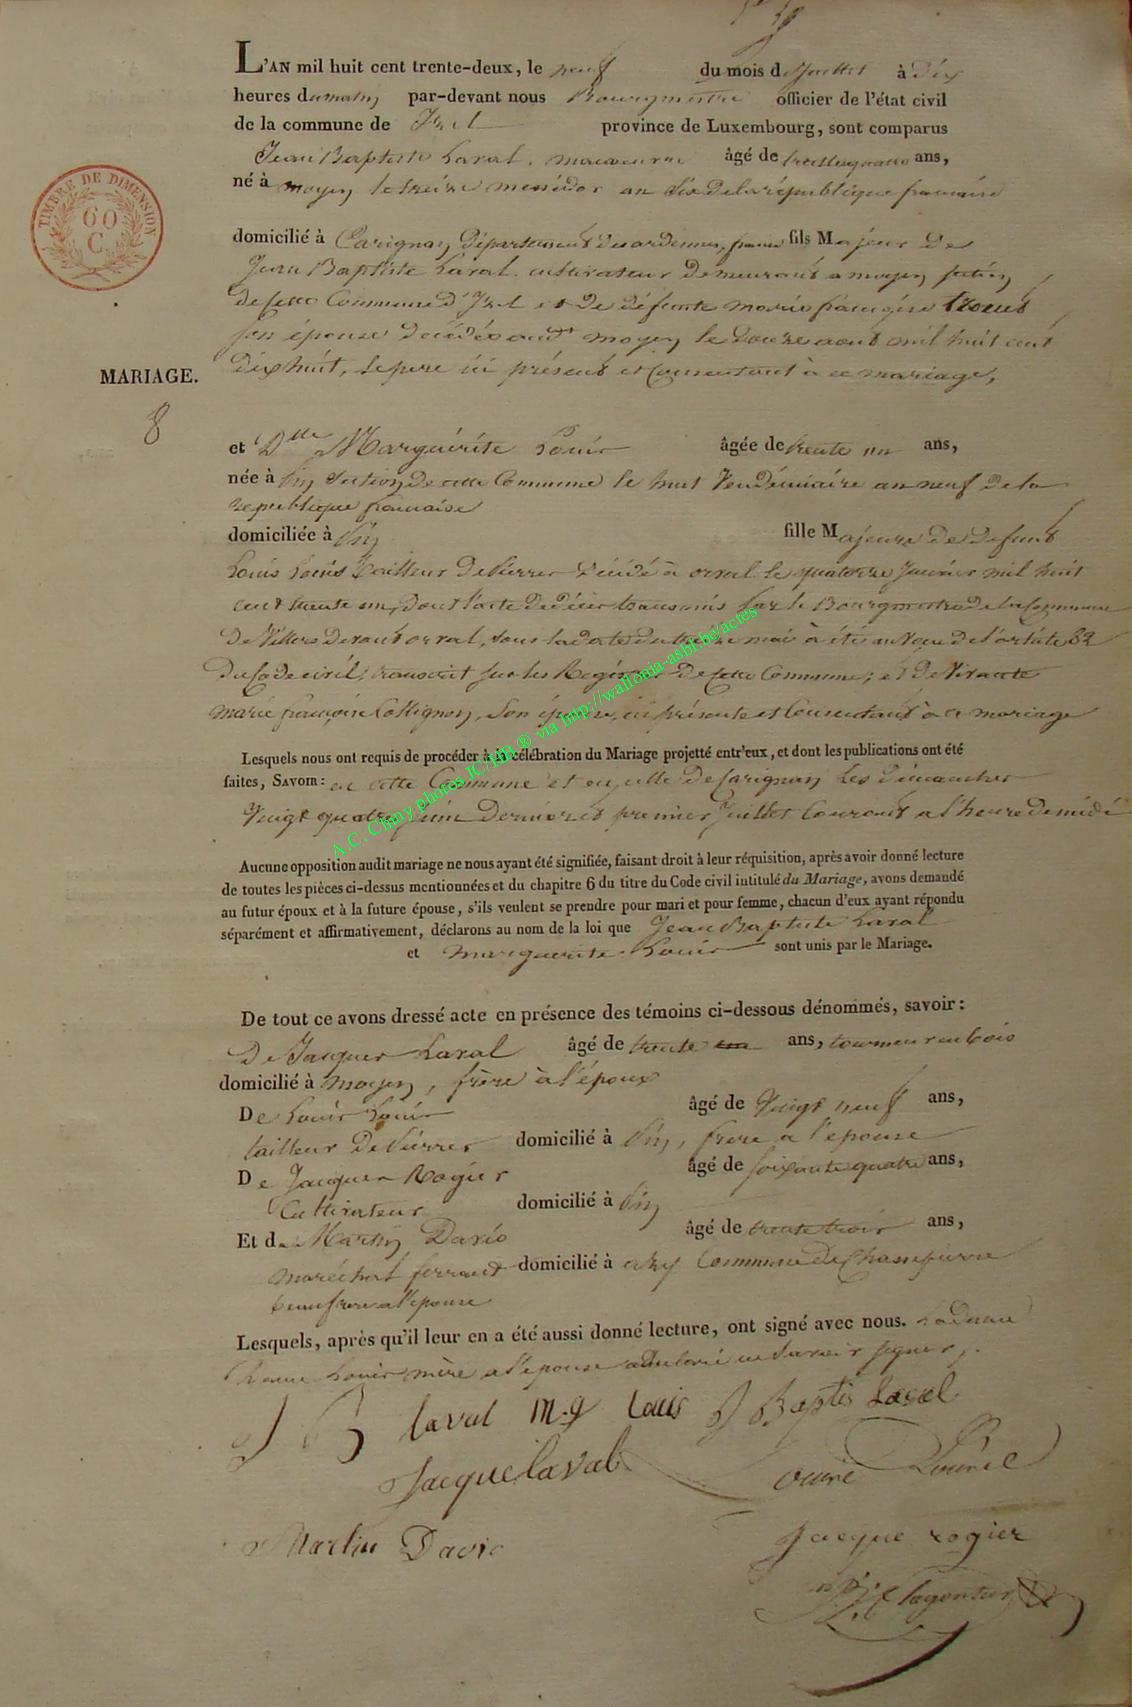 L'AN mil huit cent trente-deux, le neuf du mois de Juillet à dix
heures du matin par-devant nous Bourgmestre officier de l'état civil
de la commune de Izel province de Luxembourg, sont comparus
Jean Baptiste Laval, âgé de ans,
né à moyen le treize messidor an dix de la république française
TIMBRE DE DIMENSION
60
C.
domicilié à Carignan Département des ardennes, france fils Majeur de
Jean Baptiste Laval cultivateur demeurant a moyen section
de cette Commune d'Izel et de défunte marie françoise
son épouse décédée audt moyen le douze aout mil huit cent
dix huit, le pere ici présent et Consentant à ce mariage,
MARIAGE.
8
et Dlle Marguérite Louis âgée de trente un ans,
née à Pin Section de cette Commune le huit Vendémiaire an neuf de la
republique française
domiciliée à Pin fille Majeure de defunt
Louis Louis tailleur de Pierres décédé à orval le quatorze Janvier mil huit
cent trente un, dont l'acte de décès transmis par le Bourgmestre de la Commune
de Villers devant orval, sous la date du treize mai à été au Voeu de l'article 82
du Code civil, transcrit sur les Registres de cette Commune; et de Vivante
marie françoise Collignon, son épouse, ici présente et Consentant à ce mariage
Lesquels nous ont requis de procéder à la célébration du Mariage projetté entr'eux, et dont les publications ont été
faites, SAVOIR: en cette Commune et en celle de Carignan les dimanches
Vingt quatre Juin dernier et premier Juillet Courant a l'heure de midi
A.C. Chiny photos JC/HB ® via http://wallonia-asbl.be/actes
Aucune opposition audit mariage ne nous ayant été signifiée, faisant droit à leur réquisition, après avoir donné lecture
de toutes les pièces ci-dessus mentionnées et du chapitre 6 du titre du Code civil intitulé du Mariage, avons demandé
au futur époux et à la future épouse, s'ils veulent se prendre pour mari et pour femme, chacun d'eux ayant répondu
séparément et affirmativement, déclarons au nom de la loi que Jean Baptiste Laval
et marguerite Louis sont unis par le Mariage.
De tout ce avons dressé acte en présence des témoins ci-dessous dénommés, savoir:
De Jacques Laval âgé de trente ans, tourneur en bois
domicilié à moyen, frère à l'époux
De Louis Louis âgé de Vingt neuf ans,
tailleur de Pierres domicilié à Pin, frere a l'epouse
De Jacques Rogier âgé de soixante quatre ans,
Cultivateur domicilié à Pin
Et de Martin David âgé de trente trois ans,
maréchal ferrant domicilié à Commune de
beaufrere a l'epouse
Lesquels, après qu'il leur en a été aussi donné lecture, ont signé avec nous. La dame
Louis mère a l'epouse a déclaré ne savoir signer.
J B laval m.g Louis J Baptis Laval
Jacque laval
Martin David
Jacque rogier